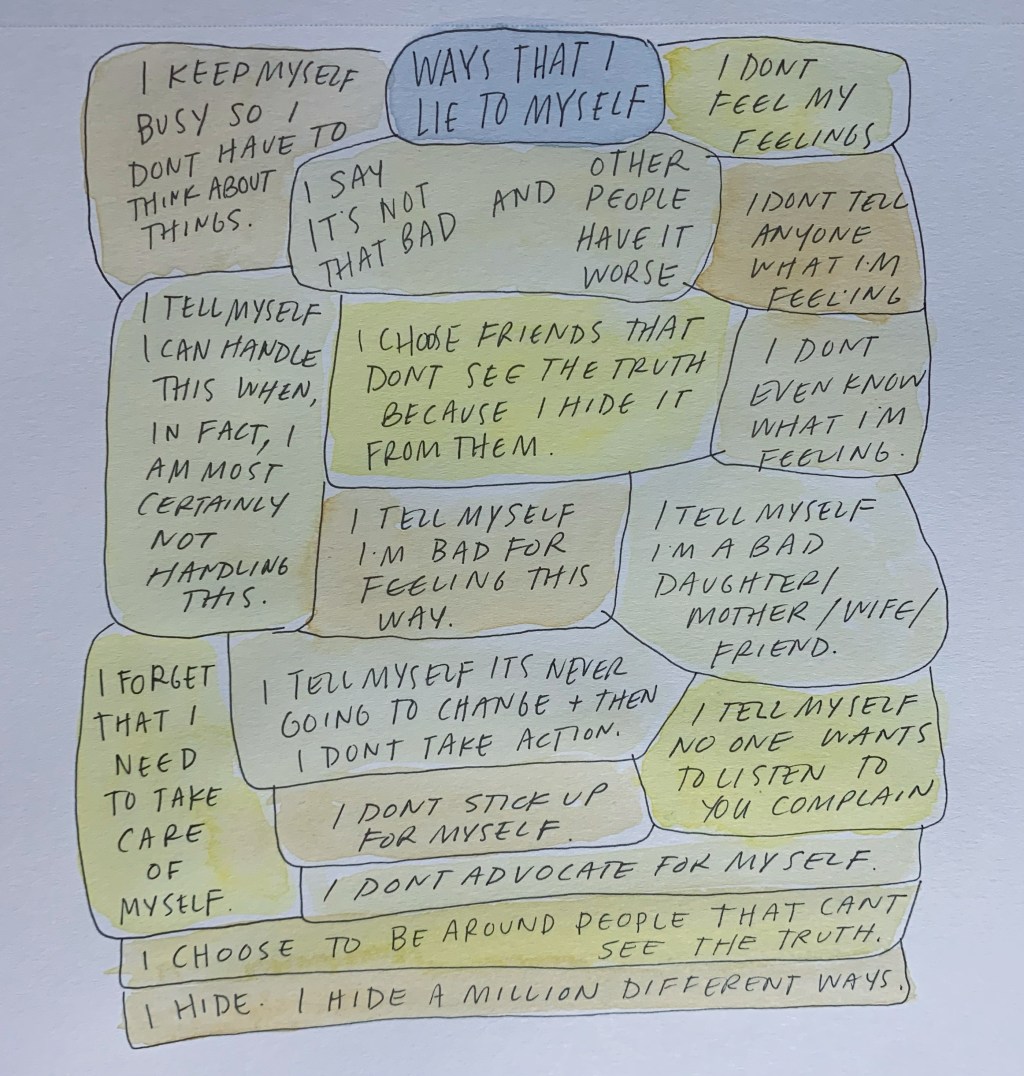 WAYS THAT I
LIE TO MYSELF
I KEEP MYSELF
BUSY SO I
DONT HAVE TO
THINK ABOUT
THINGS.
I DONT
FEEL MY
FEELINGS
I SAY
IT'S NOT
THAT BAD
AND
OTHER
PEOPLE
HAVE IT
WORSE
I DONT TELL
ANYONE
WHAT I'M
FEELING
I TELL MYSELF
I CAN HANDLE
THIS WHEN,
IN FACT, I
AM MOST
CERTAINLY
NOT
HANDLING
THIS.
I CHOOSE FRIENDS THAT
DONT SEE THE TRUTH
BECAUSE I HIDE IT
FROM THEM.
I DONT
EVEN KNOW
WHAT I'M
FEELING.
I TELL MYSELF
I'M BAD FOR
FEELING THIS
WAY.
I TELL MYSELF
I'M A BAD
DAUGHTER/
MOTHER/WIFE/
FRIEND.
I FORGET
THAT I
NEED
TO TAKE
CARE
OF
MYSELF.
I TELL MYSELF ITS NEVER
GOING TO CHANGE + THEN
I DONT TAKE ACTION.
I TELL MYSELF
NO ONE WANTS
TO LISTEN TO
YOU COMPLAIN
I DONT STICK UP
FOR MYSELF.
I DONT ADVOCATE FOR MYSELF.
I CHOOSE TO BE AROUND PEOPLE THAT CANT
SEE THE TRUTH.
I HIDE. I HIDE A MILLION DIFFERENT WAYS.